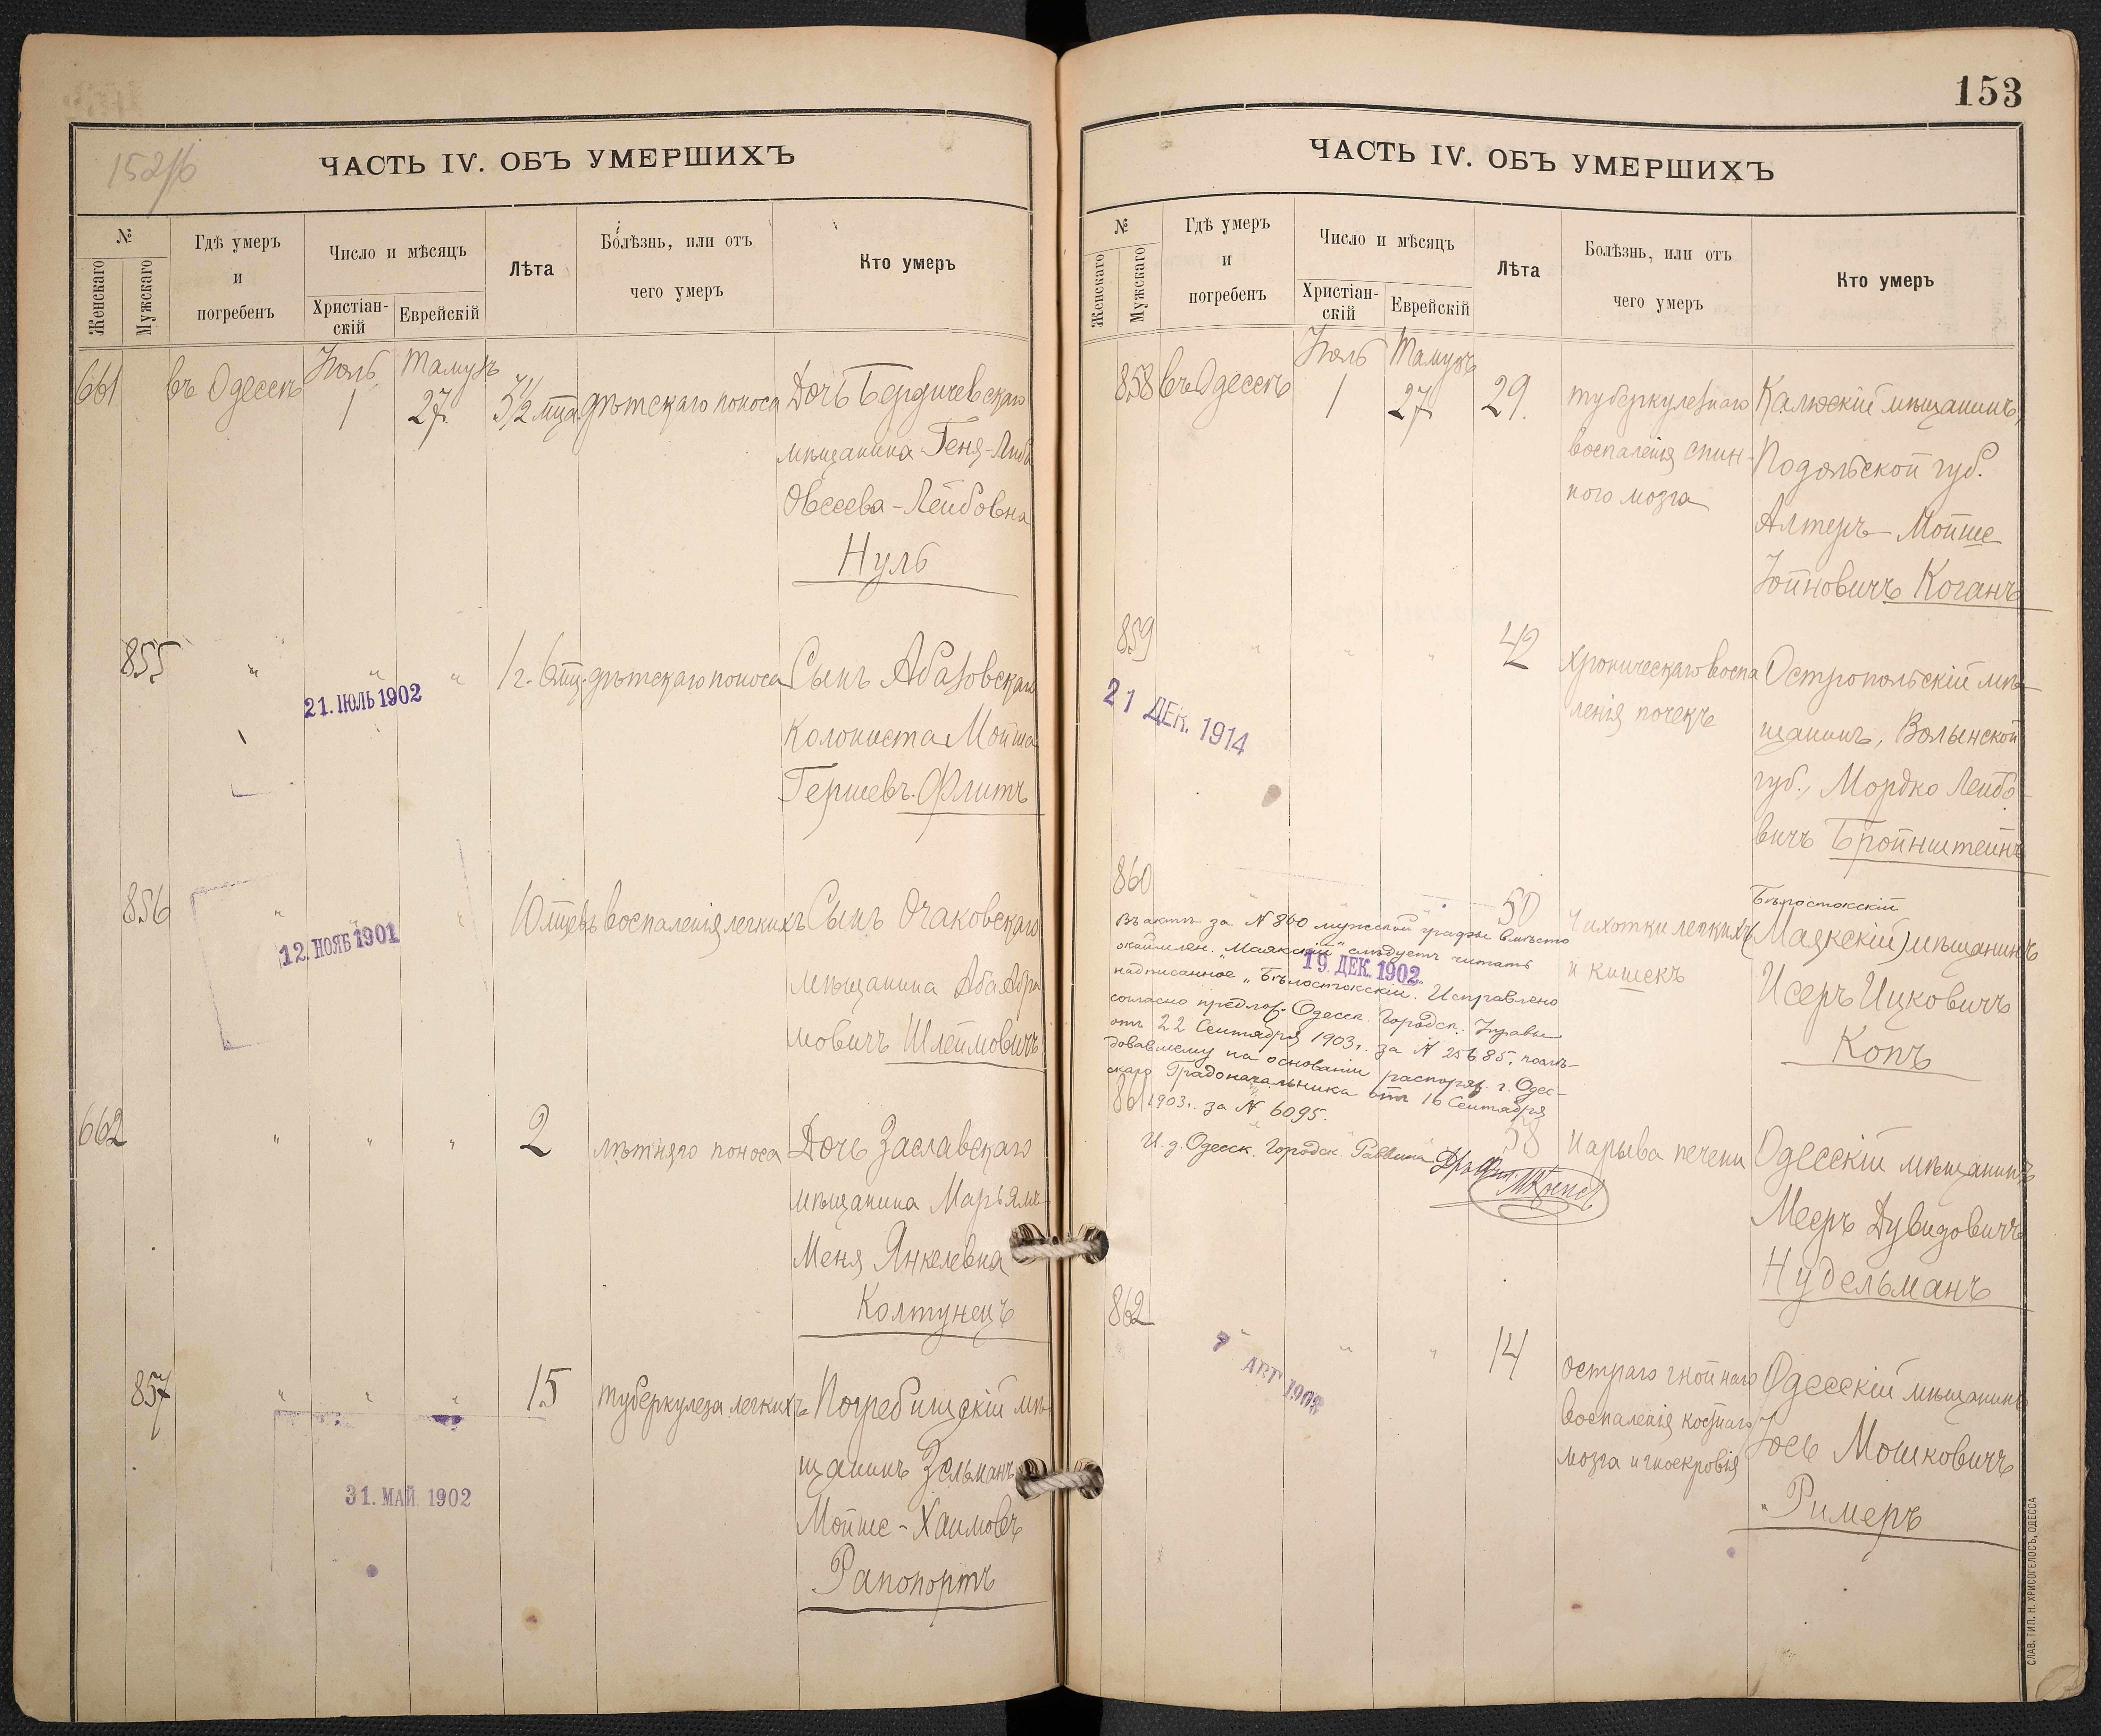 152/б
ЧАСТЬ IV. ОБЪ УМЕРШИХЪ
№
Женскаго
Мужскаго
Гдѣ умеръ
и
погребенъ
Число и мѣсяцъ
Христіан-
скій
Еврейскій
Лѣта
Болѣзнь, или отъ
чего умеръ
Кто умеръ
Іюль Тамузъ
661 въ Одессѣ 1 27. 3½ мца. дѣтскаго поноса Дочь Бердичевскаго
мѣщанина Геня-Либа
Овсеева-Лейбовна
Нуль
855 " " " 1 г. 6 мц. дѣтскаго поноса Сынъ Абазовскаго
21. ІЮЛЬ 1902
колониста Мойша
Гершевъ Флитъ
856 " " " 10 мцевъ воспаленія легкихъ Сынъ Очаковскаго
12. НОЯБ 1901
мѣщанина Аба Абра
мовичъ Шлеймовичъ
662 " " " 2 лѣтняго поноса Дочь Заславскаго
мѣщанина Марьямъ-
Меня Янкелевна
Колтунецъ
857 " " " 15 туберкулеза легкихъ Погребищскій мѣ-
щанинъ Зельманъ
31. МАЙ 1902
Мойше-Хаимовъ
Рапопортъ
153
ЧАСТЬ IV. ОБЪ УМЕРШИХЪ
№
Женскаго
Мужскаго
Гдѣ умеръ
и
погребенъ
Число и мѣсяцъ
Христіан-
скій
Еврейскій
Лѣта
Болѣзнь, или отъ
чего умеръ
Кто умеръ
Іюль Тамузъ
858 въ Одессѣ 1 27 29. туберкулезнаго Калюскій мѣщанинъ,
воспаленія спин- Подольской губ.
ного мозга
Алтеръ-Мойше
Іойновичъ Коганъ
859 " " " 42 хроническаго воспа Остропольскій мѣ-
ленія почекъ щанинъ, Волынской
21 ДЕК. 1914
губ., Мордко Лейбо-
вичъ Бройнштейнъ
860 " " " 50 Чахотки легкихъ (Маякскій) мѣщанинъ
Бѣлостокскій
и кишекъ Исеръ Ицковичъ
Копъ
Въ актѣ за № 860 мужской графы вмѣсто
окаймлен. "Маякскій" слѣдуетъ читать
19. ДЕК. 1902
надписанное "Бѣлостокскій". Исправлено
согласно предлож. Одесск. Городск. Управы
отъ 22 Сентября 1903 г. за № 25685, послѣ-
довавшему на основаніи распоряж. г. Одес-
скаго Градоначальника отъ 16 Сентября
1903 г. за № 6095.
И. д. Одесск. Городск. Раввина
861 " " 58 Нарыва печени Одесскій мѣщанинъ
Мееръ Дувидовичъ
Нудельманъ
862 " " " 14 остраго гнойнаго Одесскій мѣщанинъ
7 АВГ 1908
воспаленія костнаго Іось Мошковичъ
мозга и гноекровія
Римеръ
СЛАВ. ТИП. Н. ХРИСОГЕЛОСЪ, ОДЕССА